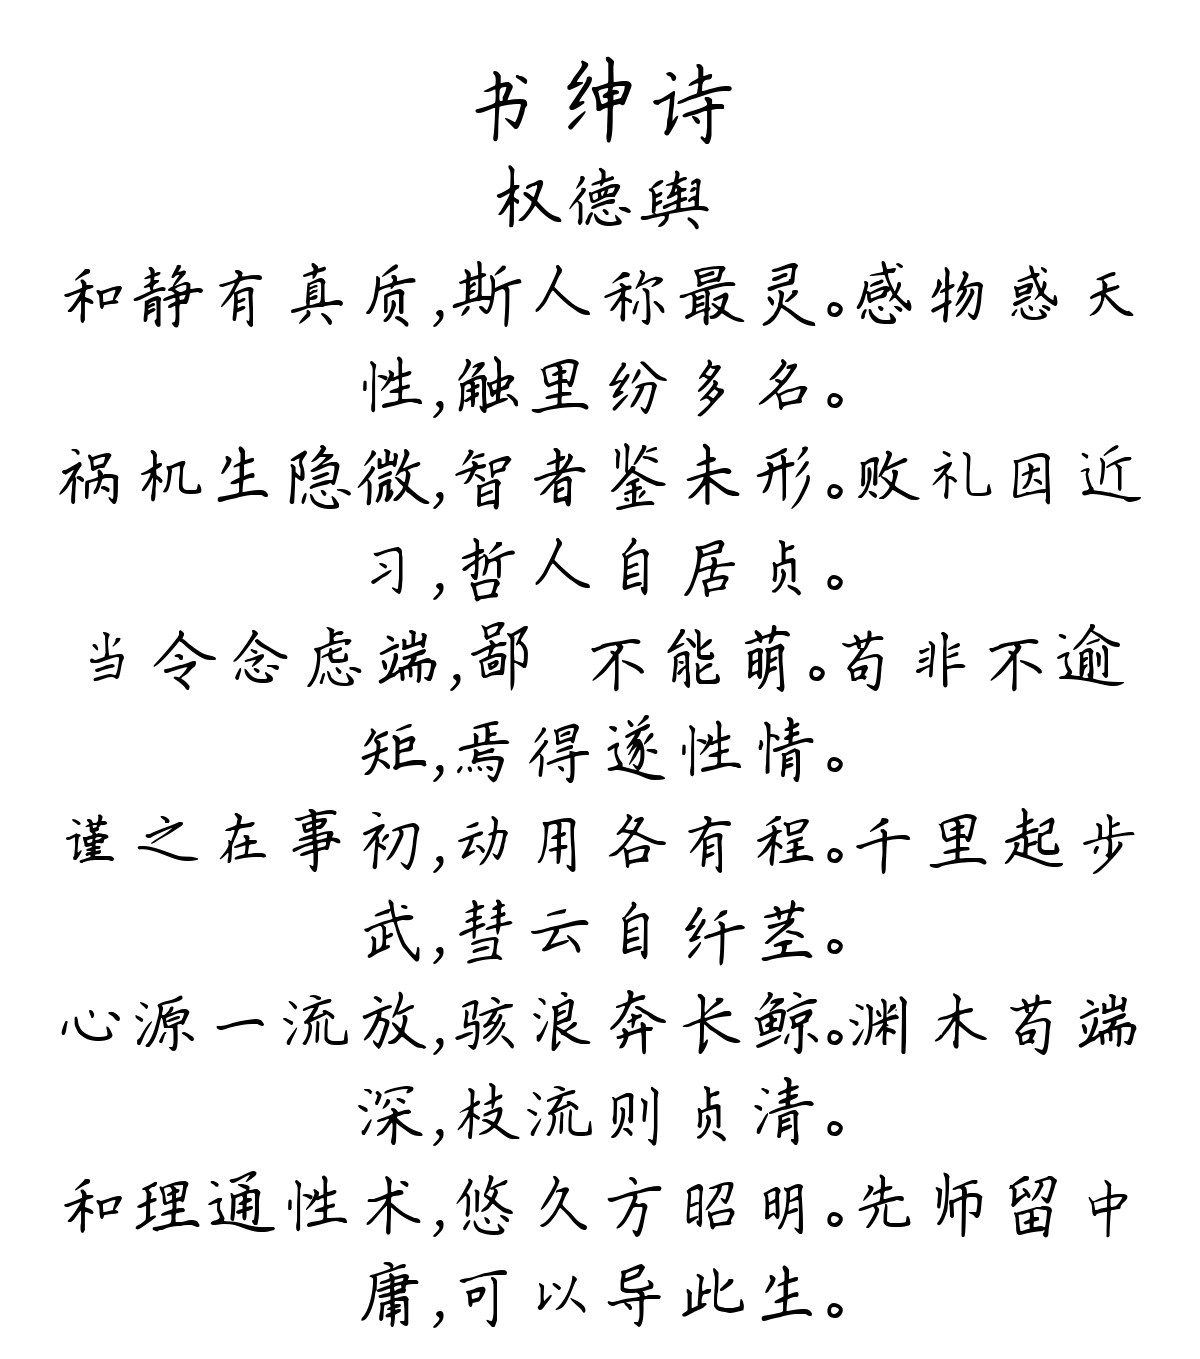 书绅诗
权德舆
和静有真质,斯人称最灵。感物惑天
性,触里纷多名。
祸机生隐微,智者鉴未形。败礼因近
习,哲人自居贞。
当令念虑端,鄙 不能萌。苟非不逾
矩,焉得遂性情。
谨之在事初,动用各有程。千里起步
武,彗云自纤茎。
心源一流放,骇浪奔长鲸。渊木苟端
深,枝流则贞清。
和理通性术,悠久方昭明。先师留中
庸,可以导此生。